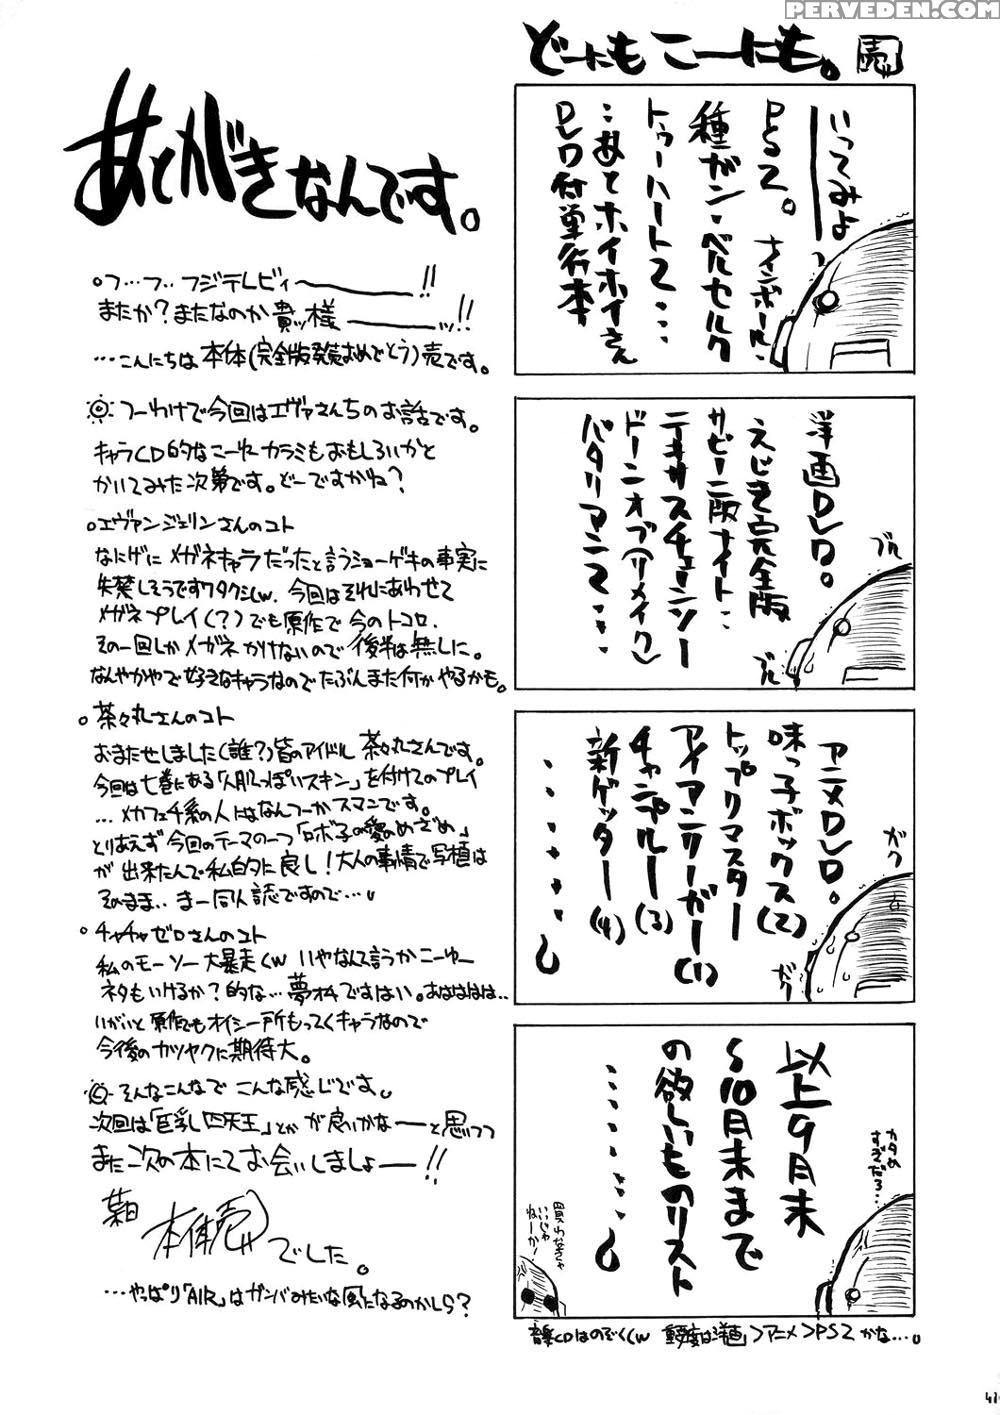 PERVEDEN.COM
どーにもこーにも。売
いってみよーーっ
PS2。ナインボール・
種ガン・ベルセルク
トゥーハート2・・・
・・あとホイホイさん
DVD付単行本
洋画DVD。
えじき完全版
サビーニ版ナイト・・
テキサスチェーンソー
ドーンオブ(リメイク)
パタリアン2・・・
ブル
ブル
アニメDVD。
味っ子ボックス(2)
トップリマスター
アイアンリーガー(1)
チャンプルー(3)
新ゲッター(4)
・・・・・・。
ガク
ガク
以上9月末
〜10月末まで
の欲しいものリスト
・・・・・・。
カタめ
すぎだろ・・・
買わなきゃ
いいじゃ
ねーか!
音楽CDはのぞく(w 重要度は洋画>アニメ>PS2かな・・・。
あとがきなんです。
○フ…フ‥フジテレビィ〜――――!!
またか?またなのか貴ッ様――――ッ!!
…こんにちは本体(完全版発売おめでとう)売です。
つーわけで今回はエヴァさんちのお話です。
キャラCD的なこーゆーカラミもおもしろいかと
かいてみた次第です。どーですかね?
○エヴァンジェリンさんのコト
なにげにメガネキャラだったと言うショーゲキの事実に
失禁しそうですワタクシ(w. 今回はそれにあわせて
メガネプレイ(?)でも原作で今のトコロ、
その一回しかメガネかけないので後半は無しに。
なんやかやで好きなキャラなのでたぶんまた何かやるかも。
○茶々丸さんのコト
おまたせしました(誰?)皆のアイドル茶々丸さんです。
今回は七巻にある「人肌っぽいスキン」を付けてのプレイ
…メカフェチ系の人にはなんつーかスマンです。
とりあえず今回のテーマの一つ「ロボ子の愛のめざめ」
が出来たんで私的に良し!大人の事情で写植は
そのまま‥まー同人誌ですので・・・。
○チャチャゼロさんのコト
私のモーソー大暴走(w いやなんて言うかこーゆー
ネタもいけるか?的な…夢オチですはい。あはははは‥
いがいと原作でもオイシー所もってくキャラなので
今後のカツヤクに期待大。
そんなこんなでこんな感じです。
次回は「巨乳四天王」とかが良いかなーーと思いつつ
また次の本にてお会いしましょーー!!
本体売でした。
…やっぱり「AIR」はガンパみたいな風になるのかしら?
41